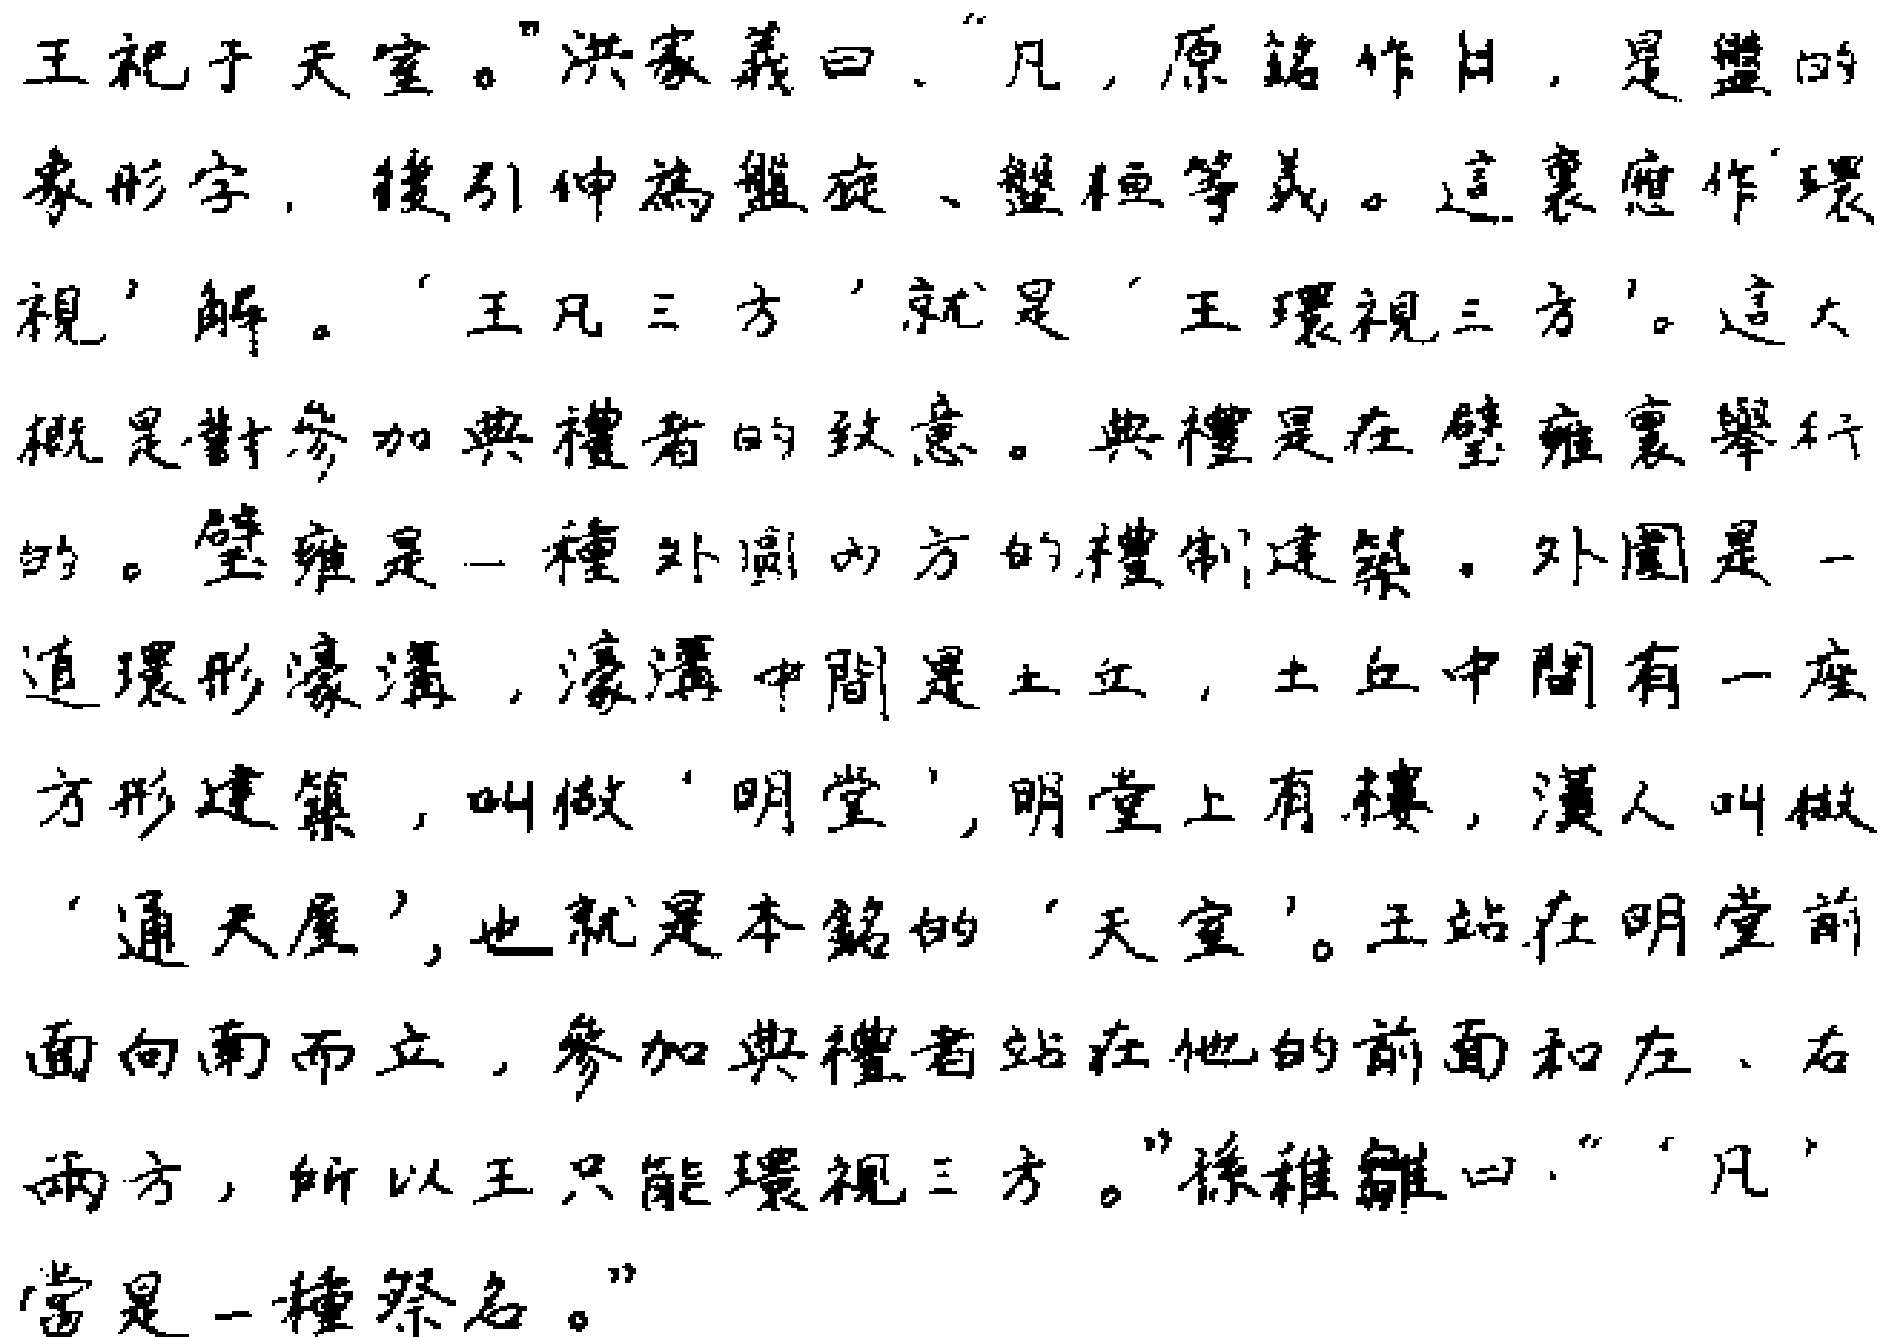 王祀于天室。”洪家義曰:“凡,原銘作𠙴,是盤的
象形字,後引伸為盤旋、盤桓等義。這裏應作‘環
視’解。‘王凡三方’就是‘王環視三方’。這大
概是對參加典禮者的致意。典禮是在壁雍裏舉行
的。壁雍是一種外圓內方的禮制建築。外圍是一
道環形濠溝,濠溝中間是土丘,土丘中間有一座
方形建築,叫做‘明堂’,明堂上有樓,漢人叫做
‘通天屋’,也就是本銘的‘天室’。王站在明堂前
面向南而立,參加典禮者站在他的前面和左、右
兩方,所以王只能環視三方。”孫稚雛曰:“‘凡’
當是一種祭名。”